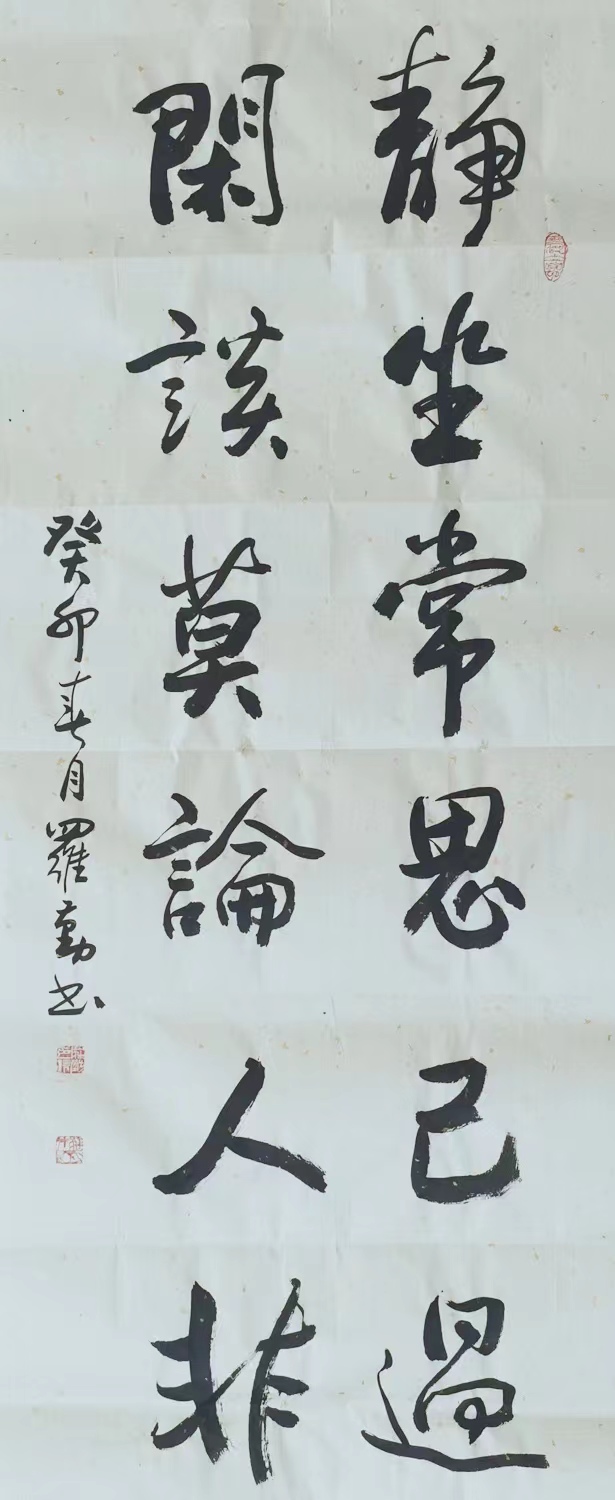 靜坐常思己過
閑談莫論人非
癸卯春月羅勤書